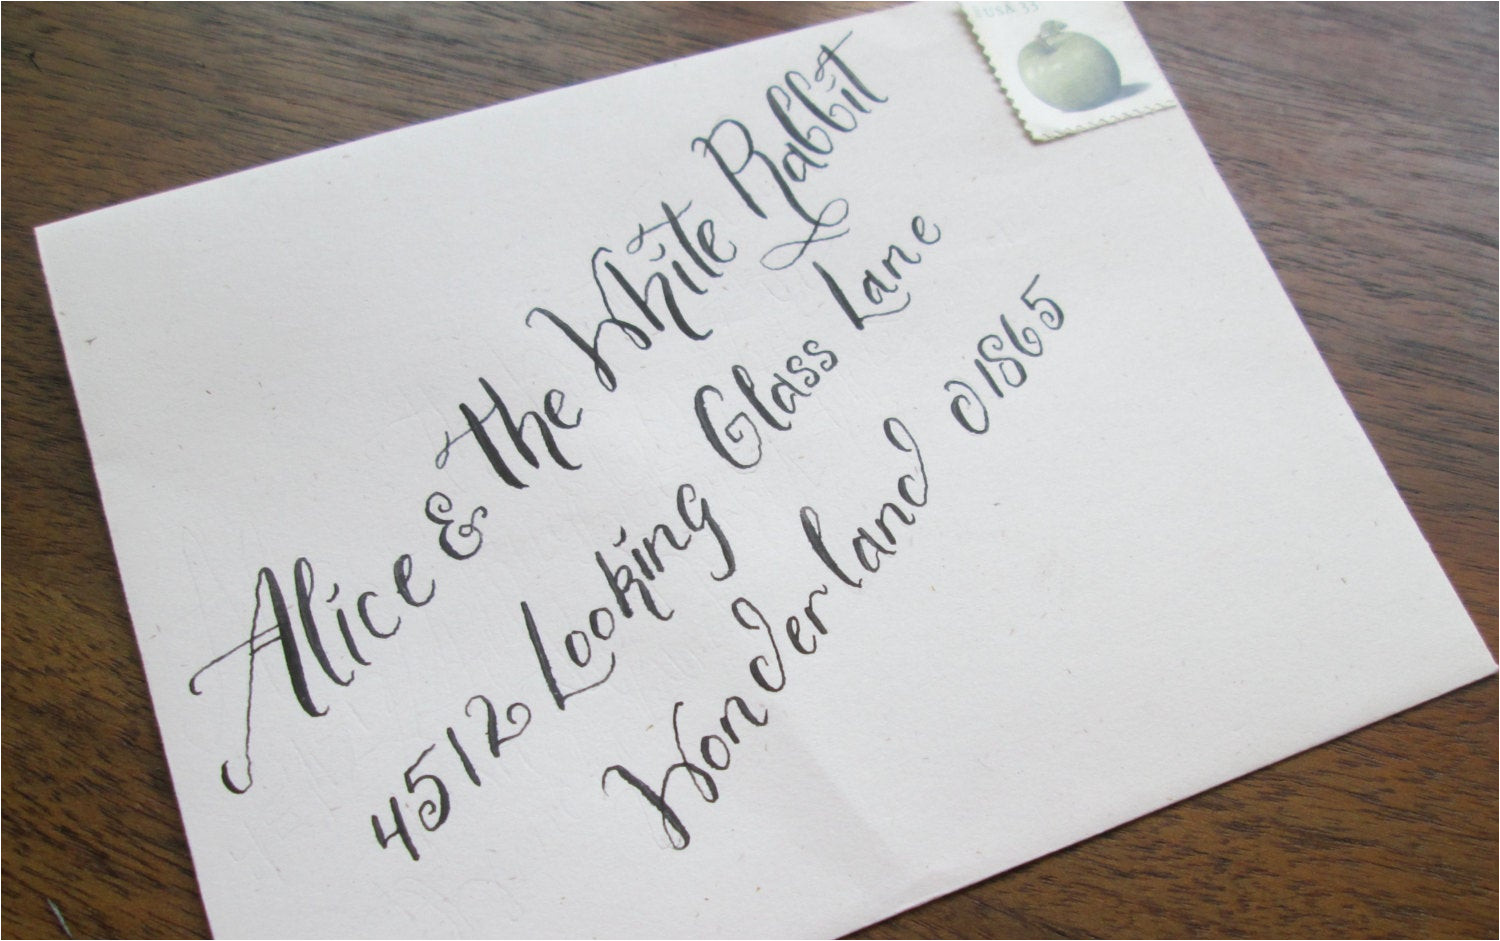 USA 33
Alice & the White Rabbit
4512 Looking Glass Lane
Wonderland 01865